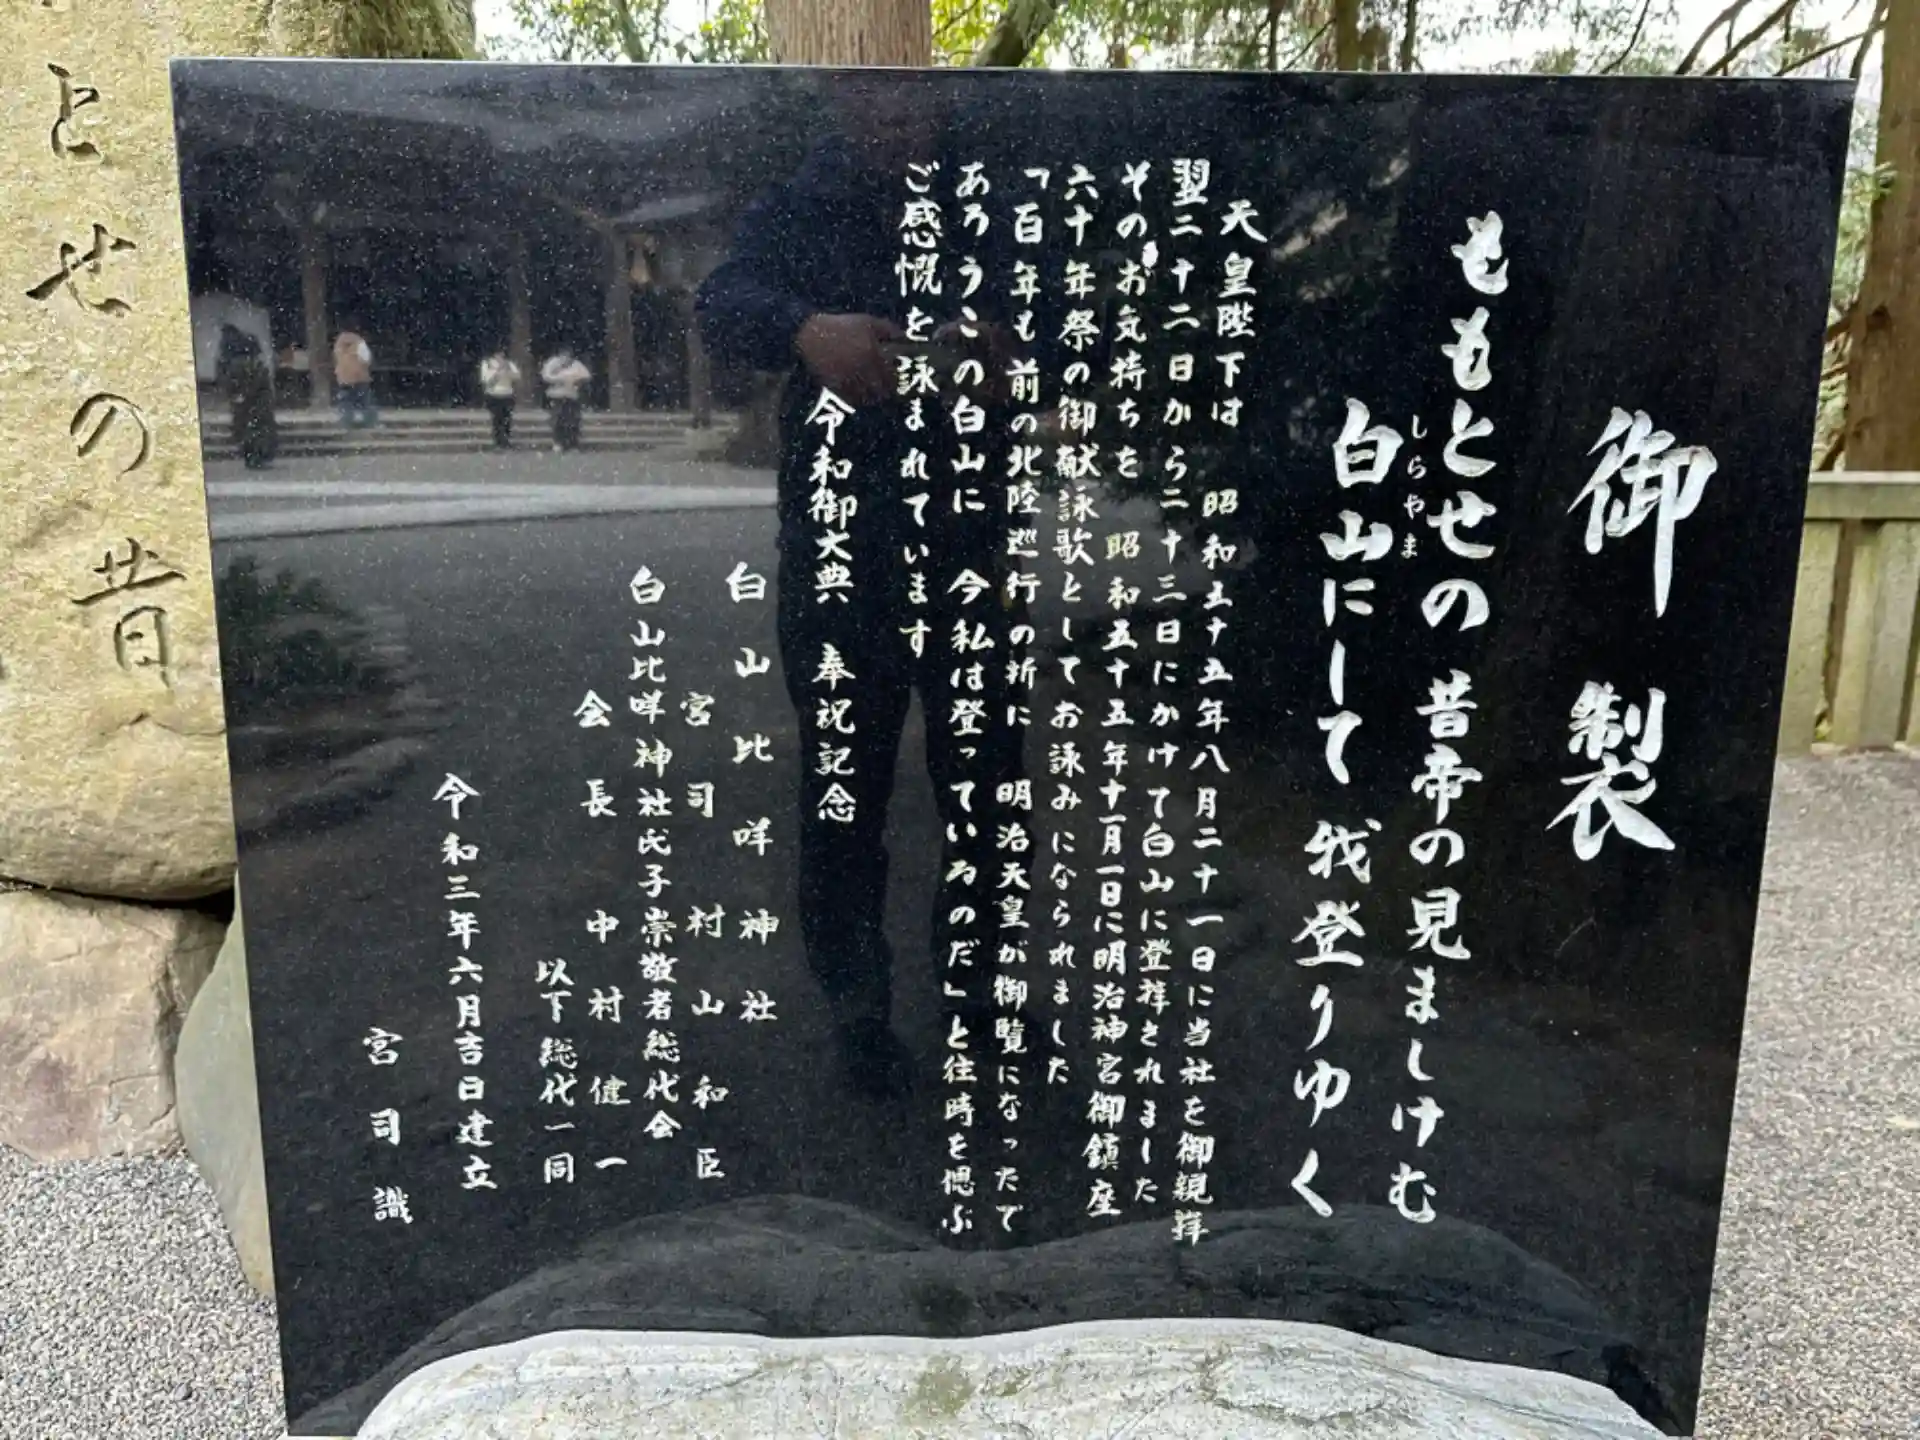 御製
ももとせの 昔帝の見ましけむ
白山にして 我登りゆく
しらやま
天皇陛下は 昭和五十五年八月二十一日に当社を御親拝
翌二十二日から二十三日にかけて白山に登拝されました
そのお気持ちを 昭和五十五年十一月一日に明治神宮御鎮座
六十年祭の御献詠歌としてお詠みになられました
「百年も前の北陸巡行の折に 明治天皇が御覧になったで
あろうこの白山に 今私は登っているのだ」と往時を偲ぶ
ご感慨を詠まれています
令和御大典 奉祝記念
白山比咩神社
宮司 村山和臣
白山比咩神社氏子崇敬者総代会
会長 中村健一
以下総代一同
令和三年六月吉日建立
宮司識
とせの 昔